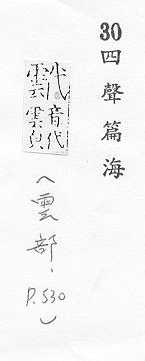 30 四聲篇海
音代
雲皃
(雲部、P.530)